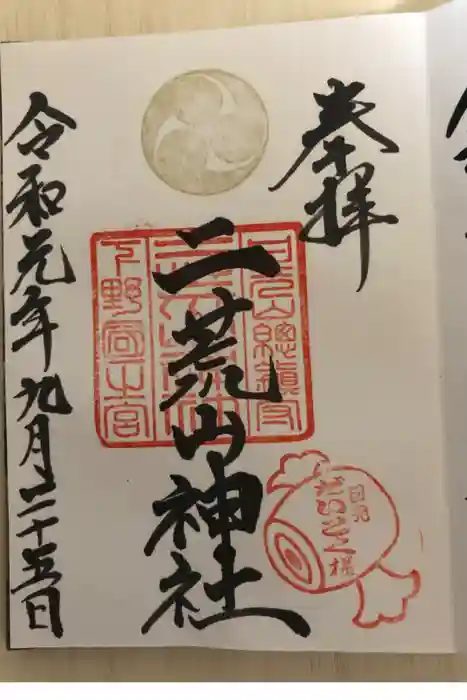 奉拝
二荒山神社
日光山總鎮守
下野國一之宮
日光
だいこく様
令和元年九月二十五日